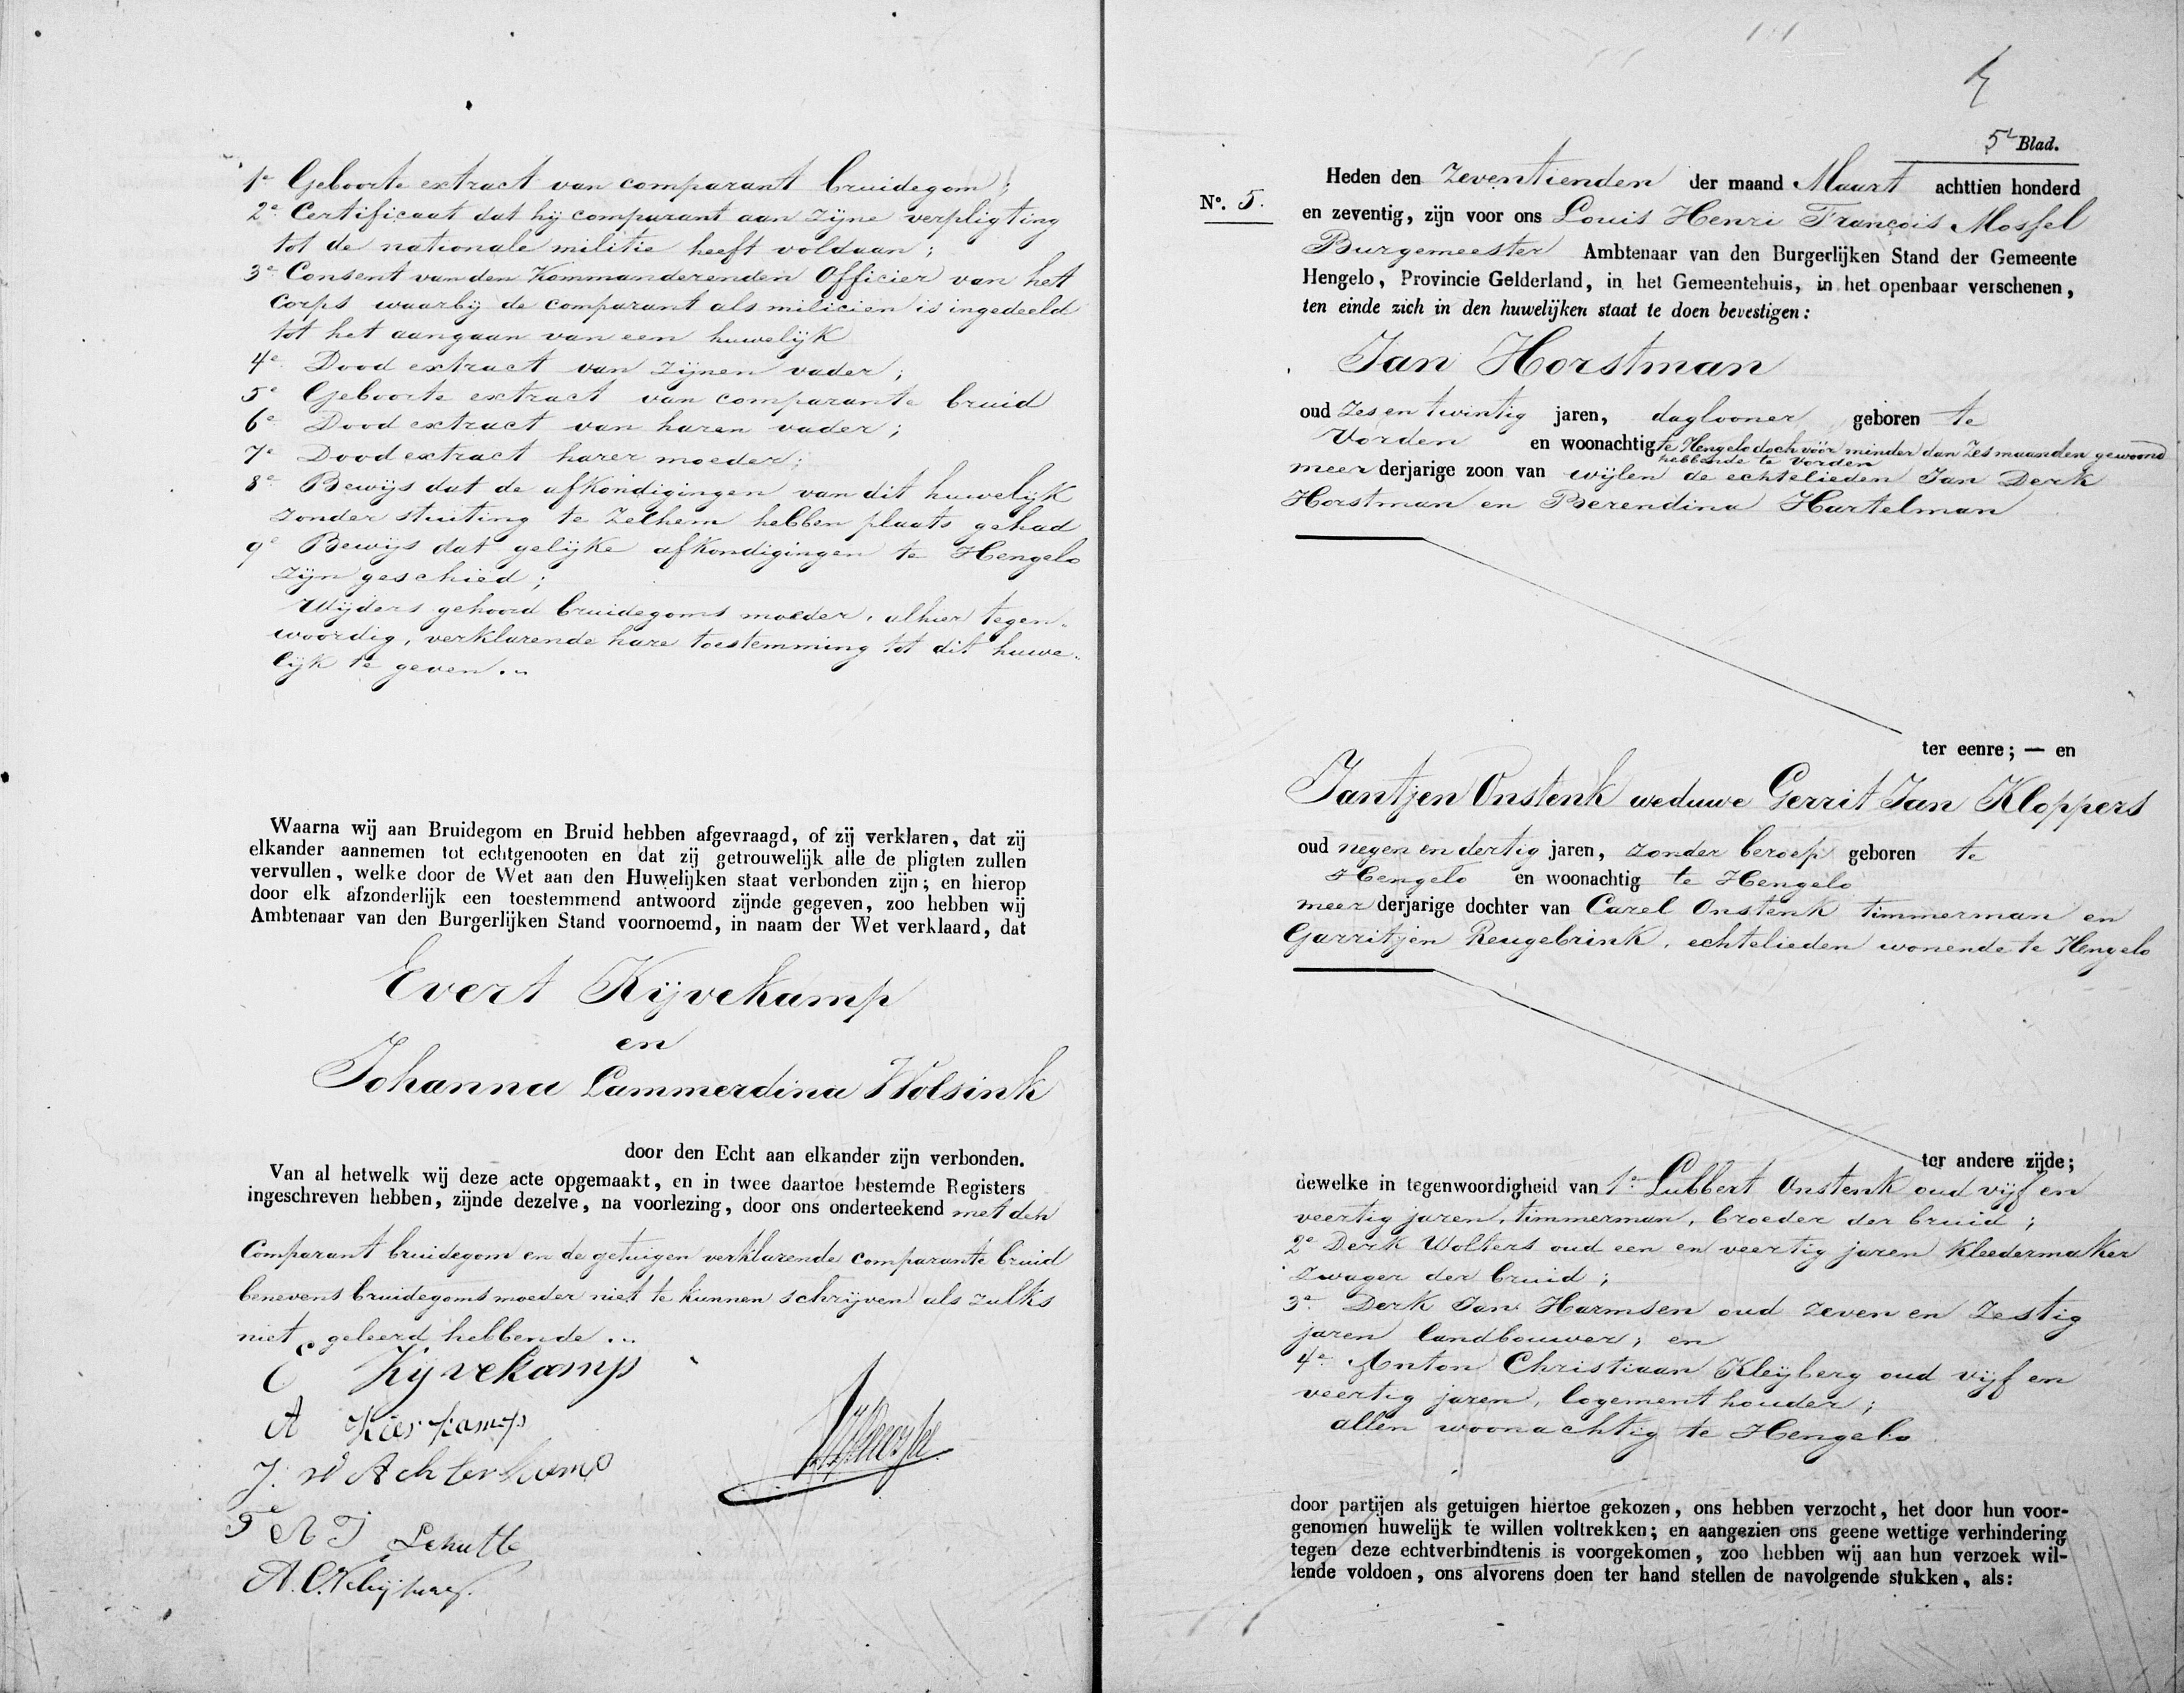 1e Geboorte extract van comparant bruidegom;
2e Certificaat dat hij comparant aan zijne verpligting
tot de nationale militie heeft voldaan;
3e Consent van den Kommanderenden Officier van het
Corps waarbij de comparant als milicien is ingedeeld
tot het aangaan van een huwelijk
4e Dood extract van zijnen vader;
5e Geboorte extract van comparante bruid
6e Dood extract van haren vader;
7e Dood extract harer moeder;
8e Bewijs dat de afkondigingen van dit huwelijk
zonder stuiting te Zelhem hebben plaats gehad
9e Bewijs dat gelijke afkondigingen te Hengelo
zijn geschied;
Wijders gehoord bruidegoms moeder, alhier tegen-
woordig, verklarende hare toestemming tot dit huwe-
lijk te geven...
Waarna wij aan Bruidegom en Bruid hebben afgevraagd, of zij verklaren, dat zij
elkander aannemen tot echtgenooten en dat zij getrouwelijk alle de pligten zullen
vervullen, welke door de Wet aan den Huwelijken staat verbonden zijn; en hierop
door elk afzonderlijk een toestemmend antwoord zijnde gegeven, zoo hebben wij
Ambtenaar van den Burgerlijken Stand voornoemd, in naam der Wet verklaard, dat
Evert Kijvekamp
en
Johanna Lammerdina Wolsink
door den Echt aan elkander zijn verbonden.
Van al hetwelk wij deze acte opgemaakt, en in twee daartoe bestemde Registers
ingeschreven hebben, zijnde dezelve, na voorlezing, door ons onderteekend met den
Comparant bruidegom en de getuigen verklarende comparante bruid
benevens bruidegoms moeder niet te kunnen schrijven als zulks
niet geleerd hebbende...
E Kijvekamp
A
J. W Achterkamp
Schutte
A. C. Kleijberg.
5e Blad.
No. 5.
Heden den Zeventienden der maand Maart achttien honderd
en zeventig, zijn voor ons Louis Henri François Mossel
Burgemeester Ambtenaar van den Burgerlijken Stand der Gemeente
Hengelo, Provincie Gelderland, in het Gemeentehuis, in het openbaar verschenen,
ten einde zich in den huwelijken staat te doen bevestigen:
Jan Horstman
oud Zes en twintig jaren, daglooner geboren te
Vorden en woonachtig te Hengelo doch vóór minder dan Zes maanden gewoond
hebbende te Vorden
meer derjarige zoon van wijlen de echtelieden Jan Derk
Horstman en Berendina Hartelman
ter eenre; — en
Jantjen Onstenk weduwe Gerrit Jan Kloppers
oud negen en dertig jaren, zonder beroep geboren te
Hengelo en woonachtig te Hengelo
meer derjarige dochter van Carel Onstenk timmerman en
Garritjen Reugebrink, echtelieden wonende te Hengelo
ter andere zijde;
dewelke in tegenwoordigheid van 1e Lubbert Onstenk oud vijf en
veertig jaren, timmerman, broeder der bruid;
2e Derk Wolters oud een en veertig jaren Kleedermaker
zwager der bruid;
3e Derk Jan Harmsen oud zeven en Zestig
jaren landbouwer; en
4e Anton Christiaan Kleijberg oud vijf en
veertig jaren, logementhouder;
allen woonachtig te Hengelo
door partijen als getuigen hiertoe gekozen, ons hebben verzocht, het door hun voor-
genomen huwelijk te willen voltrekken; en aangezien ons geene wettige verhindering
tegen deze echtverbindtenis is voorgekomen, zoo hebben wij aan hun verzoek wil-
lende voldoen, ons alvorens doen ter hand stellen de navolgende stukken, als: